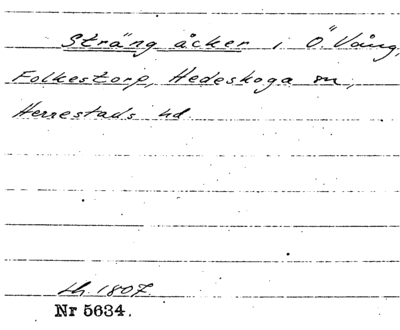 Sträng åcker i Ö. Vång,
Folkestorp, Hedeskoga sn,
Herrestads hd.
Lh. 1807.
Nr 5634.